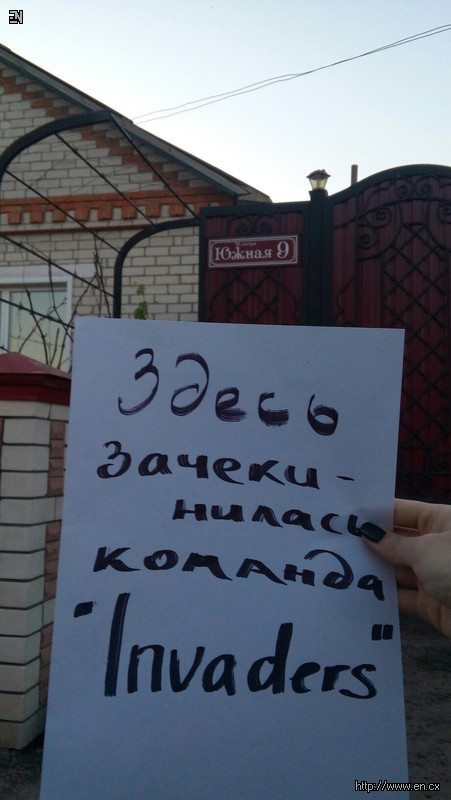 EN
Южная 9
Здесь
зачеки-
нилась
команда
"Invaders"
http://www.en.cx